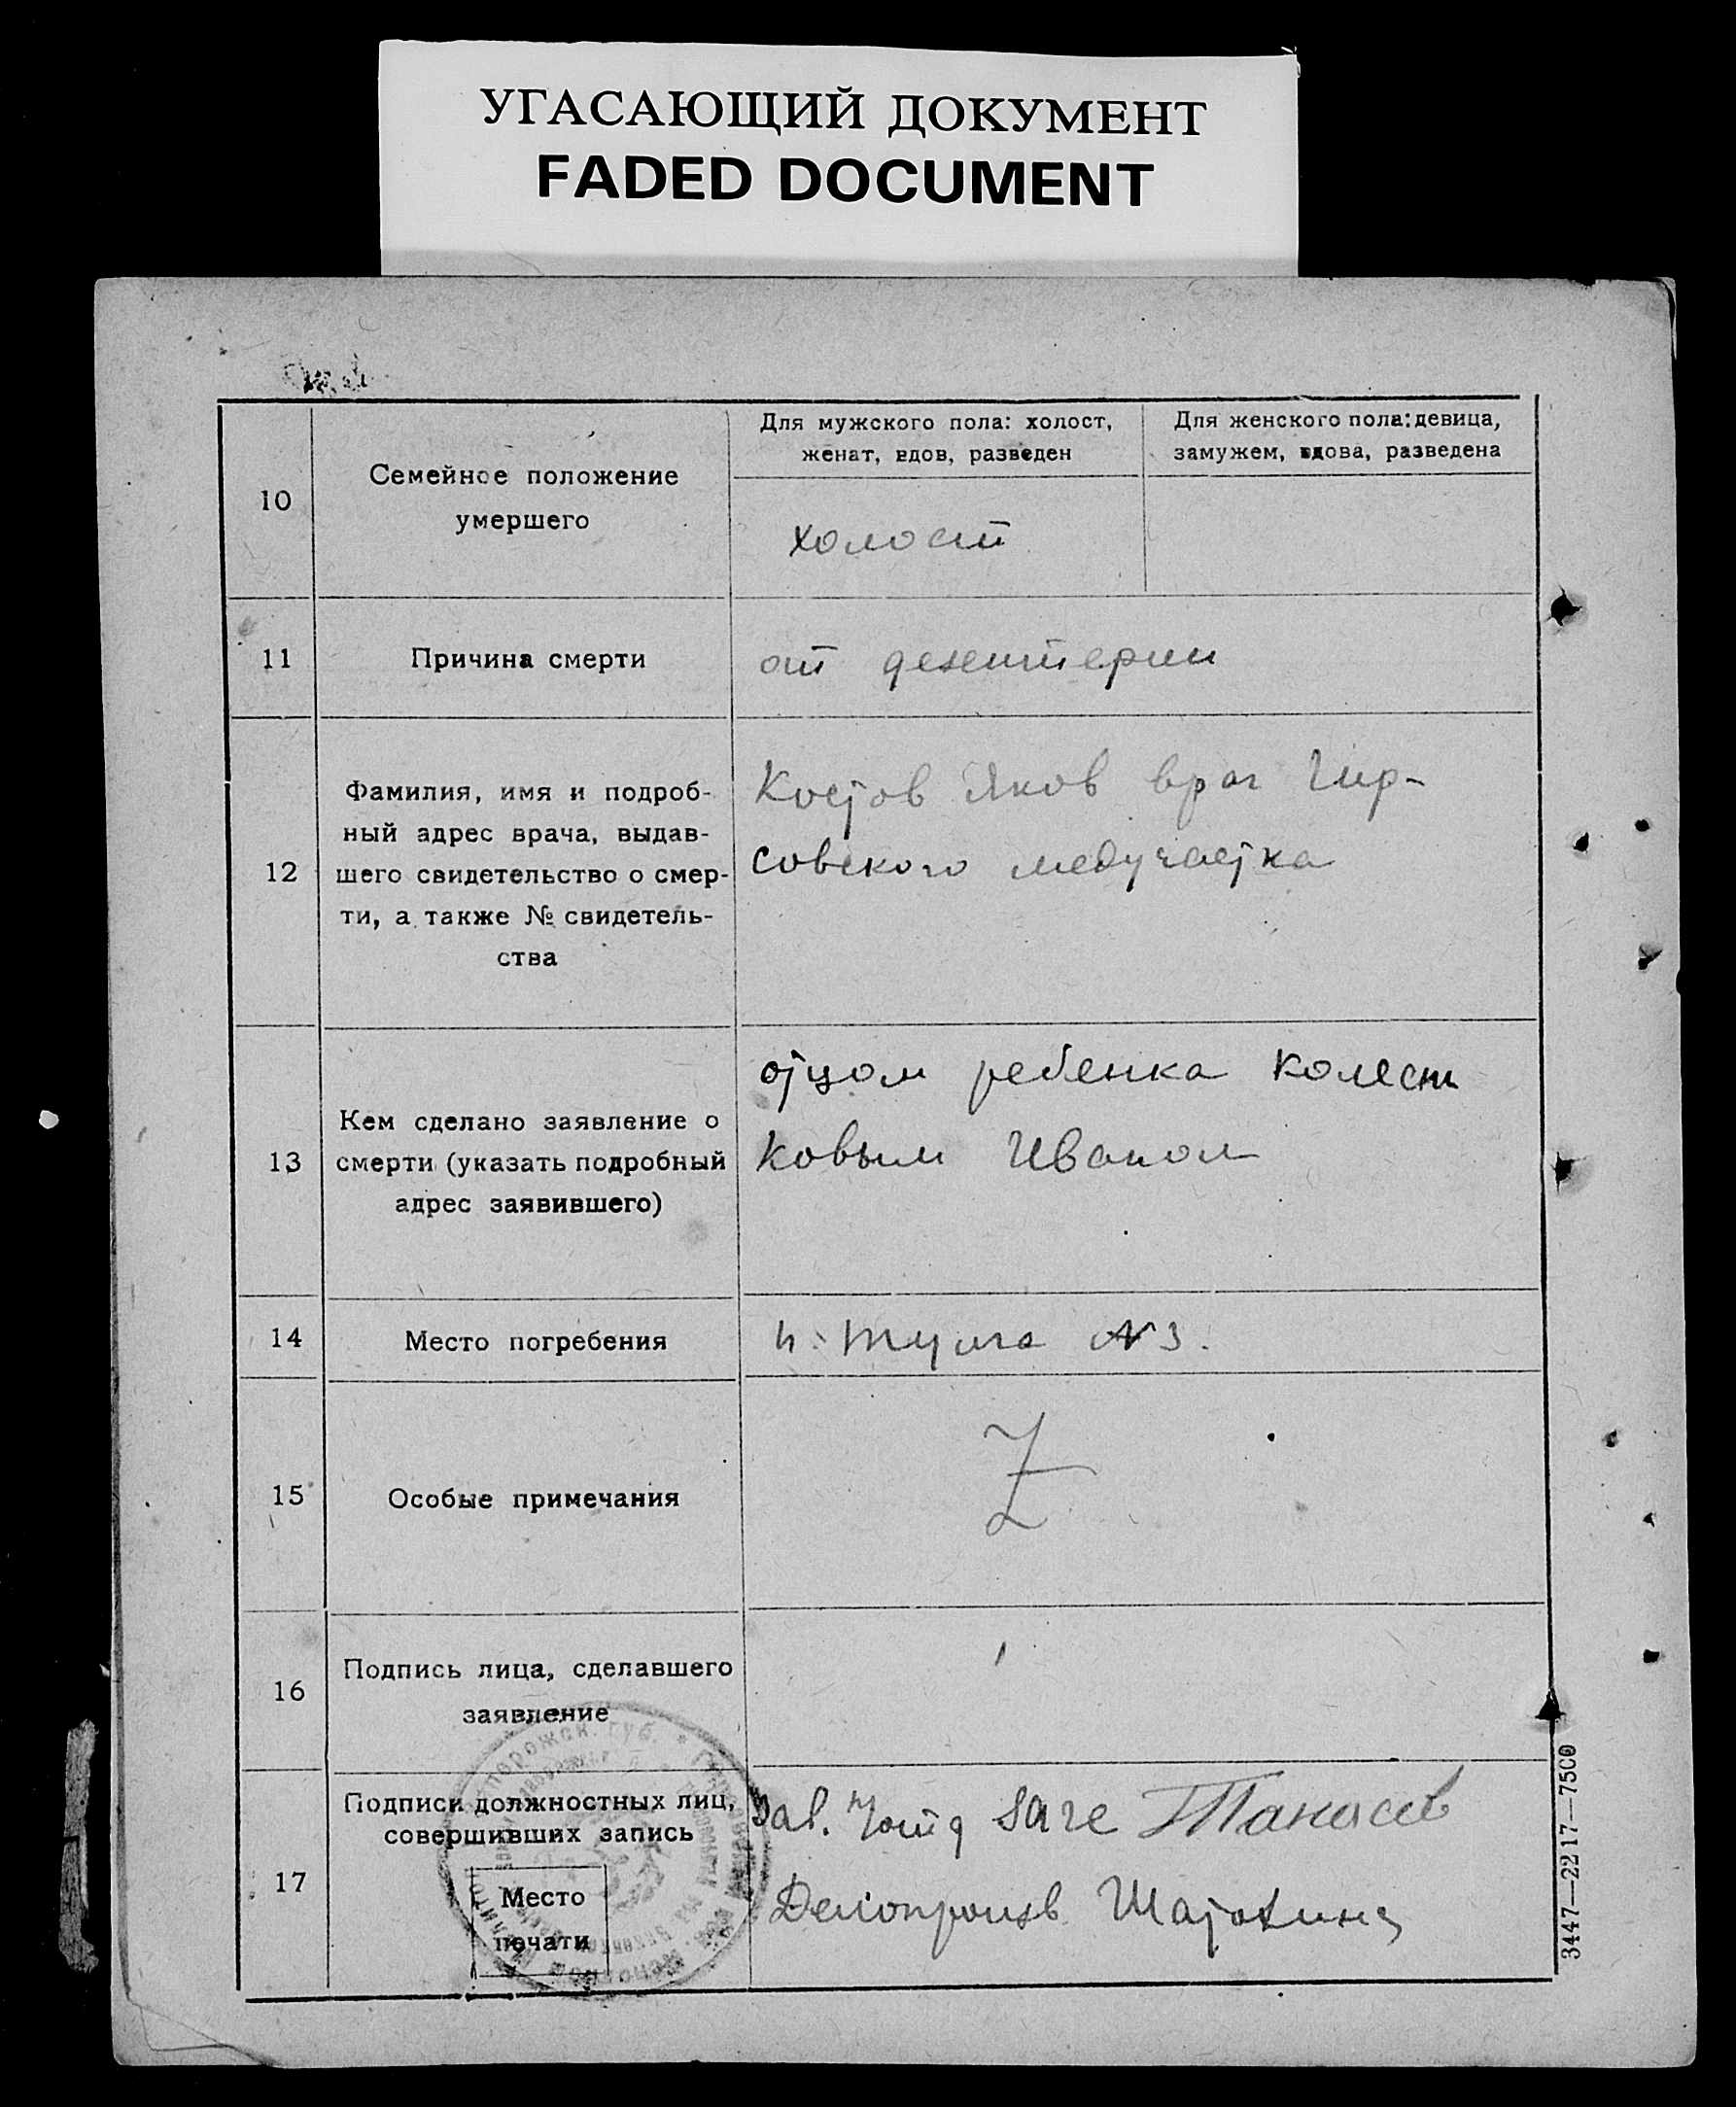 УГАСАЮЩИЙ ДОКУМЕНТ
FADED DOCUMENT
10
Семейное положение
умершего
Для мужского пола: холост,
женат, вдов, разведен
Для женского пола: девица,
замужем, вдова, разведена
холост
11
Причина смерти
от дезентерии
12
Фамилия, имя и подроб-
ный адрес врача, выдав-
шего свидетельство о смер-
ти, а также № свидетель-
ства
Костов Яков врач Гир-
совского медучастка
13
Кем сделано заявление о
смерти (указать подробный
адрес заявившего)
отцом ребенка Колесн
ковым Иваном
14
Место погребения
№ 3.
15
Особые примечания
Z
16
Подпись лица, сделавшего
заявление
17
Подписи должностных лиц,
совершивших запись
Место
печати
Зав. Загс Танасов
Делопроизв.
порожск. губ.
3447—2217—7500